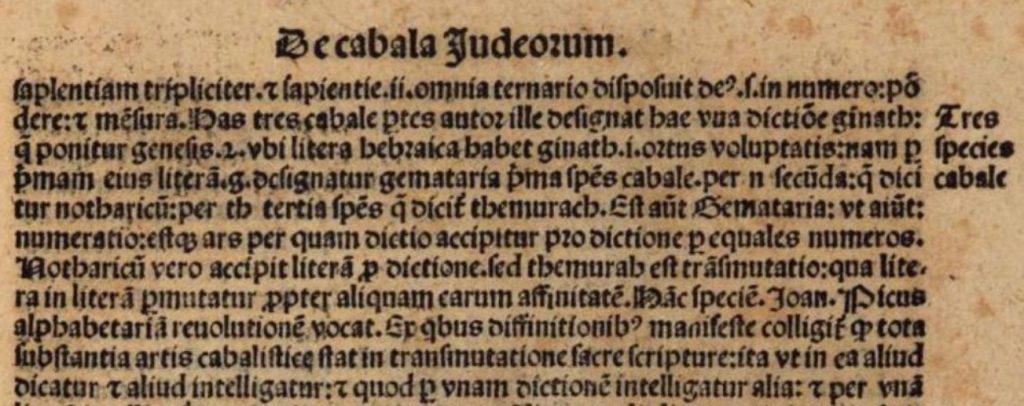 De cabala Judeorum.
sapientiam tripliciter. ⁊ sapientie .ii. omnia ternario disposuit deꝰ .s. in numero: põ
dere: ⁊ mẽsura. Has tres cabale ꝑtes autor ille designat hac vna dictiõe ginath:
Tres
q̃ ponitur genesis .2. vbi litera hebraica habet ginath .i. ortus voluptatis: nam ꝑ
species
p̃mam eius literã .g. designatur gemataria p̃ma spẽs cabale. per n secũda: q̃ dici
cabale
tur notharicũ: per th tertia spẽs q̃ dicit̃ themurach. Est aũt Gemataria: vt aiũt:
numeratio: estqꝫ ars per quam dictio accipitur pro dictione ꝑ equales numeros.
Notharicũ vero accipit literã ꝓ dictione. sed themurah est trãsmutatio: qua lite-
ra in literã ꝑmutatur ꝓpter aliquam earum affinitatẽ. Hãc speciẽ. Joan. Picus
alphabetariã reuolutionẽ vocat. Ex qbus diffinitionibꝰ manifeste colligit̃ ꝙ tota
substantia artis cabalistice stat in transmutatione sacre scripture: ita vt in ea aliud
dicatur ⁊ aliud intelligatur: ⁊ quod ꝑ vnam dictionẽ intelligatur alia: ⁊ per vnã